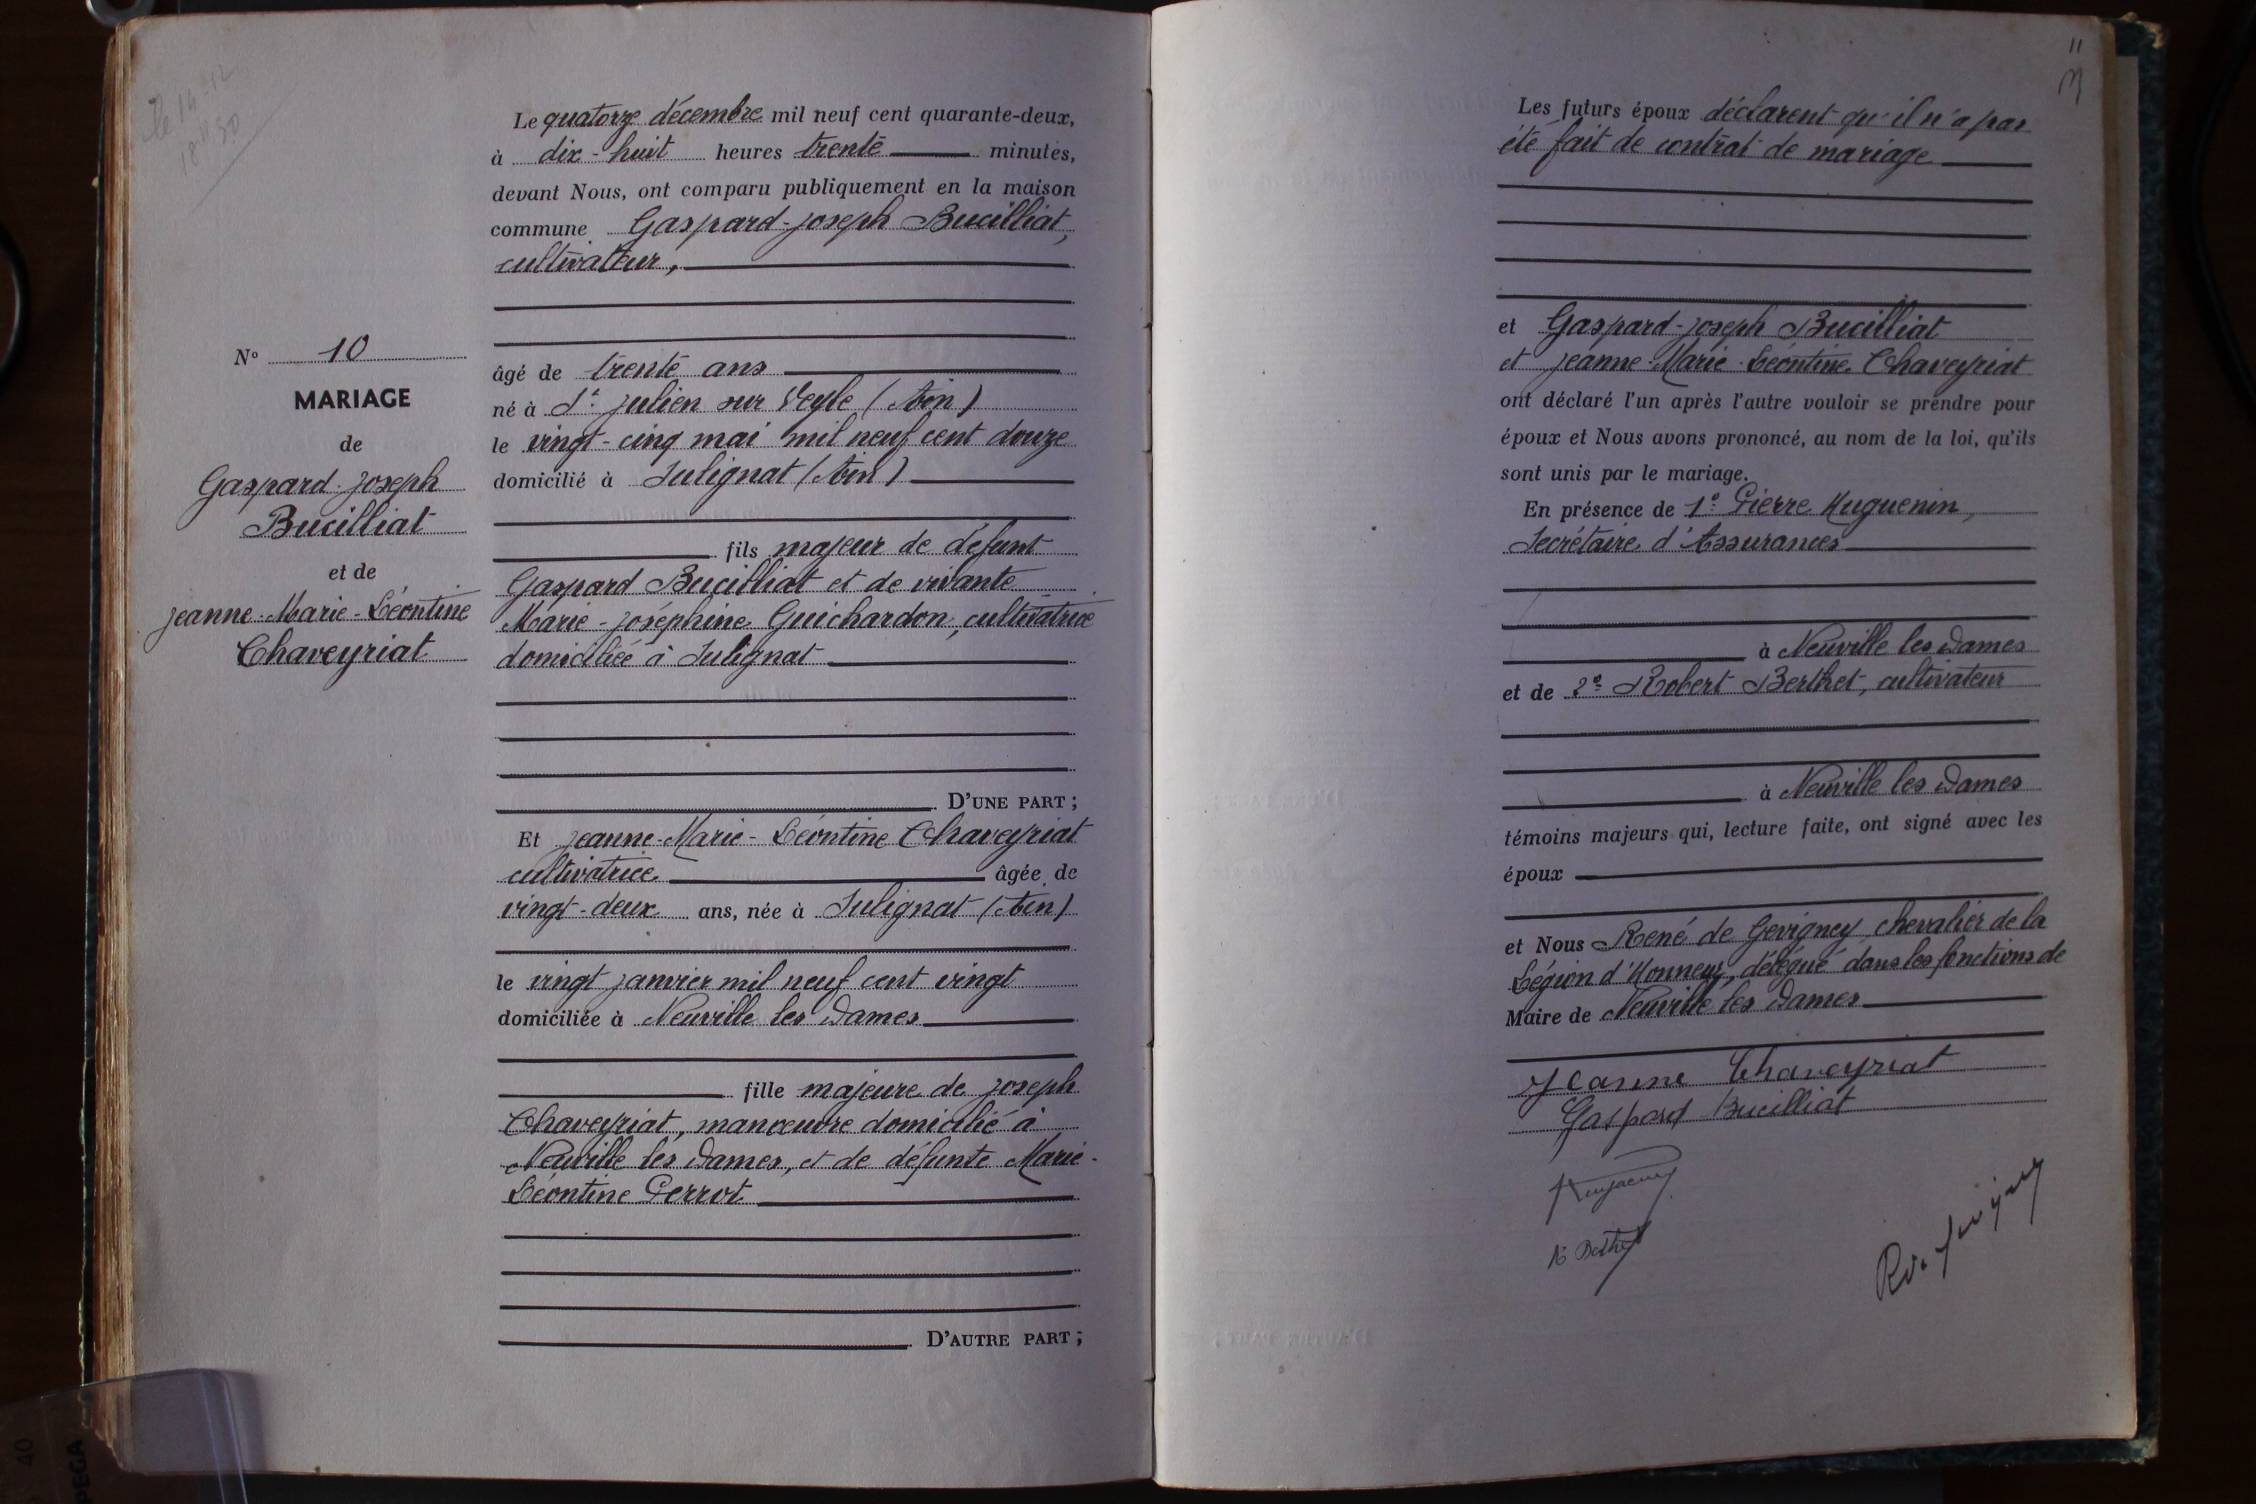 le 14-12
18h30
Le quatorze décembre mil neuf cent quarante-deux,
à dix-huit heures trente minutes,
devant Nous, ont comparu publiquement en la maison
commune Gaspard-Joseph Bucilliat,
cultivateur,
âgé de trente ans
né à St Julien sur Veyle (Ain)
le vingt-cinq mai mil neuf cent douze
domicilié à Sulignat (Ain)
fils majeur de défunt
Gaspard Bucilliat et de vivante
Marie-Joséphine Guichardon, cultivatrice
domiciliée à Sulignat
D'UNE PART ;
Et Jeanne-Marie-Léontine Chaveyriat
cultivatrice âgée de
vingt-deux ans, née à Sulignat (Ain)
le vingt janvier mil neuf cent vingt
domiciliée à Neuville les Dames
fille majeure de Joseph
Chaveyriat, manœuvre domicilié à
Neuville les Dames, et de défunte Marie-
Léontine Perrot
D'AUTRE PART ;
No 10
MARIAGE
de
Gaspard-Joseph
Bucilliat
et de
Jeanne-Marie-Léontine
Chaveyriat
11
Les futurs époux déclarent qu'il n'a pas
été fait de contrat de mariage
et Gaspard-Joseph Bucilliat
et Jeanne-Marie-Léontine Chaveyriat
ont déclaré l'un après l'autre vouloir se prendre pour
époux et Nous avons prononcé, au nom de la loi, qu'ils
sont unis par le mariage.
En présence de 1o Pierre Huguenin,
Secrétaire d'Assurances
à Neuville les Dames
et de 2o Robert Berthet, cultivateur
à Neuville les Dames
témoins majeurs qui, lecture faite, ont signé avec les
époux
et Nous René de Gevigney chevalier de la
Légion d'Honneur, délégué dans les fonctions de
Maire de Neuville les Dames
Jeanne Chaveyriat
Gaspard Bucilliat
R Berthet
40
PEGA